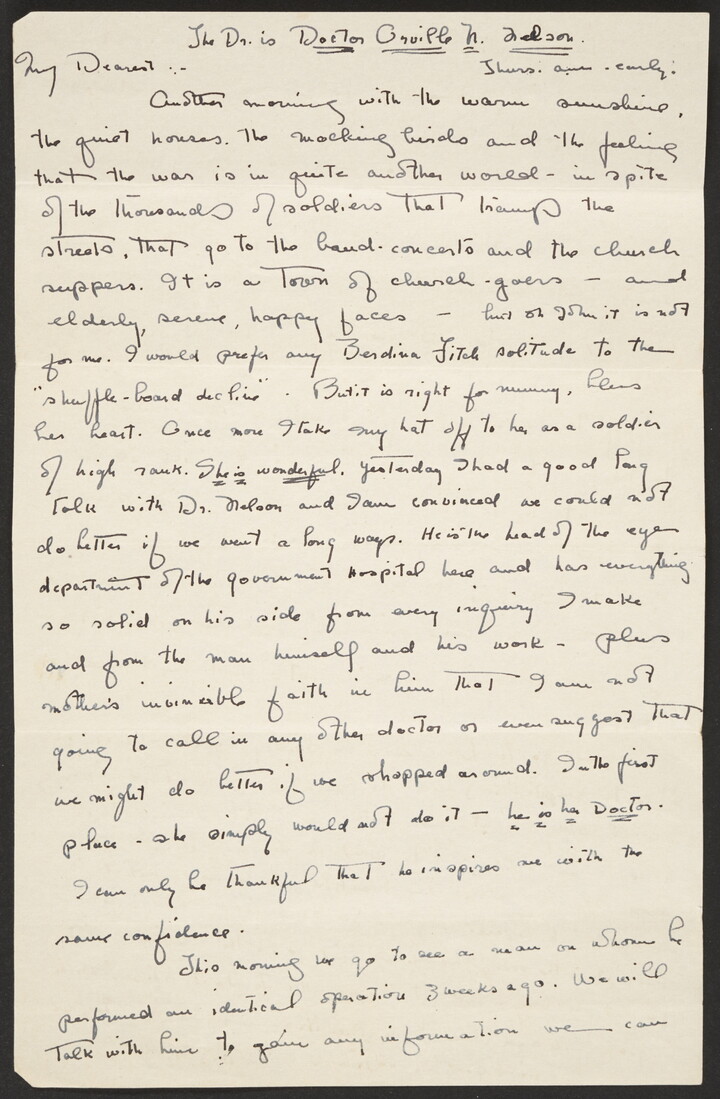 The Dr. is Doctor Orville N. Nelson.
My Dearest :-
Thurs. a.m. - early:
Another morning with the warm sunshine,
the quiet houses. the mocking birds and the feeling
that the war is in quite another world - in spite
of the thousands of soldiers that tramp the
streets, that go to the band-concerts and the church
suppers. It is a Town of church-goers - and
elderly, serene, happy faces - but oh John it is not
for me. I would prefer any Berdina Fitch solitude to the
"shuffle-board decline". But it is right for mummy, bless
her heart. Once more I take my hat off to her as a soldier
of high rank. She is wonderful. Yesterday I had a good long
talk with Dr. Nelson and I am convinced we could not
do better if we went a long ways. He is the head of the eye
department of the government Hospital here and has everything
so solid on his side from every inquiry I make
and from the man himself and his work - plus
mother's invincible faith in him that I am not
going to call in any other doctor or even suggest that
we might do better if we shopped around. In the first
place - she simply would not do it - he is her Doctor.
I can only be thankful that he inspires me with the
same confidence.
This morning we go to see a man on whom he
performed an identical operation 3 weeks ago. We will
Talk with him to gain any information we can